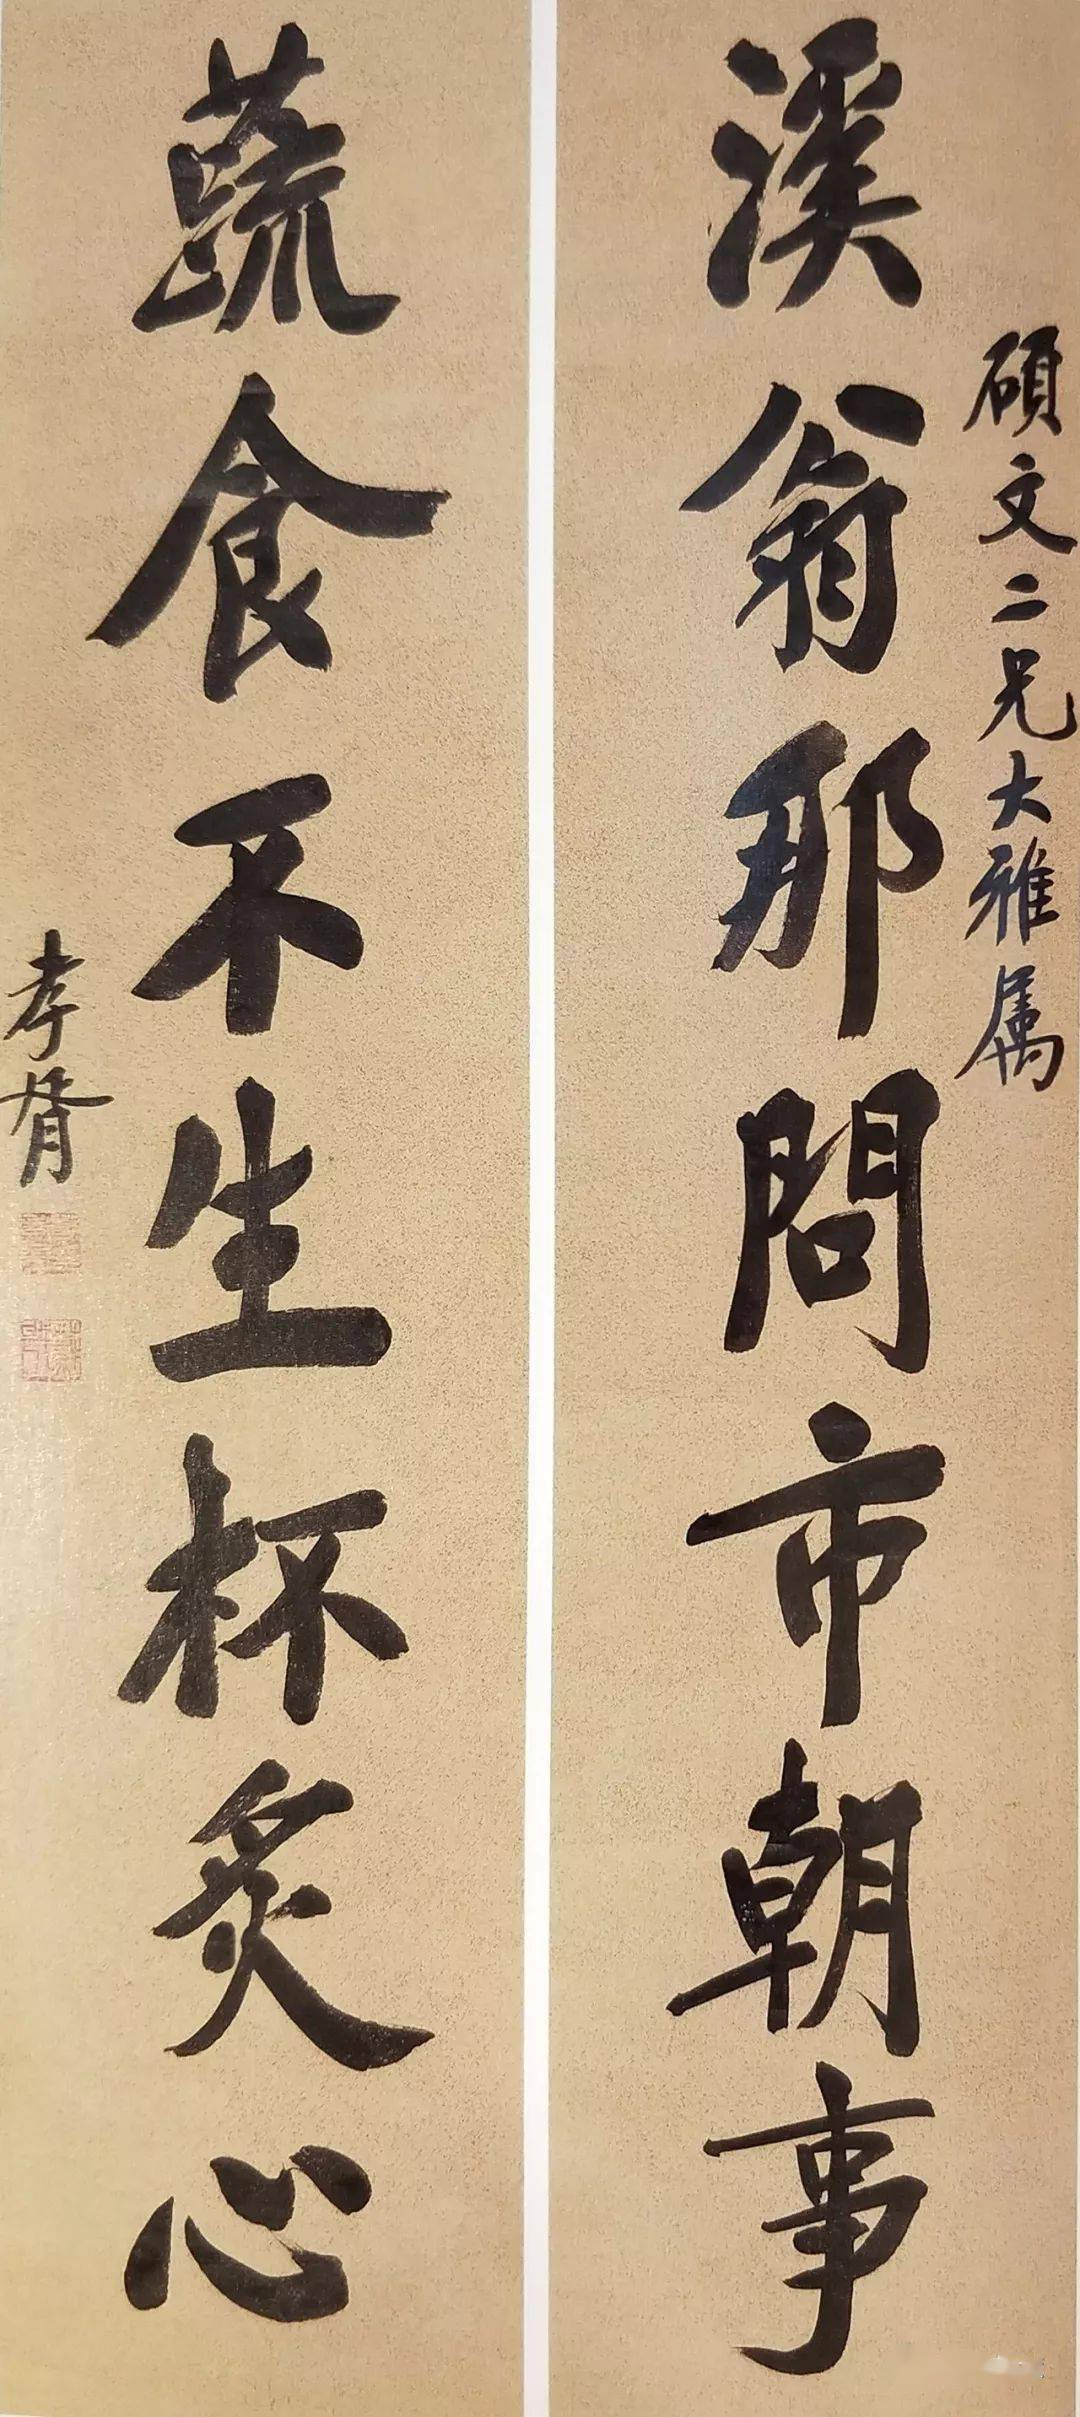 碩文二兄大雅属
溪翁那問市朝事
蔬食不生杯炙心
孝胥